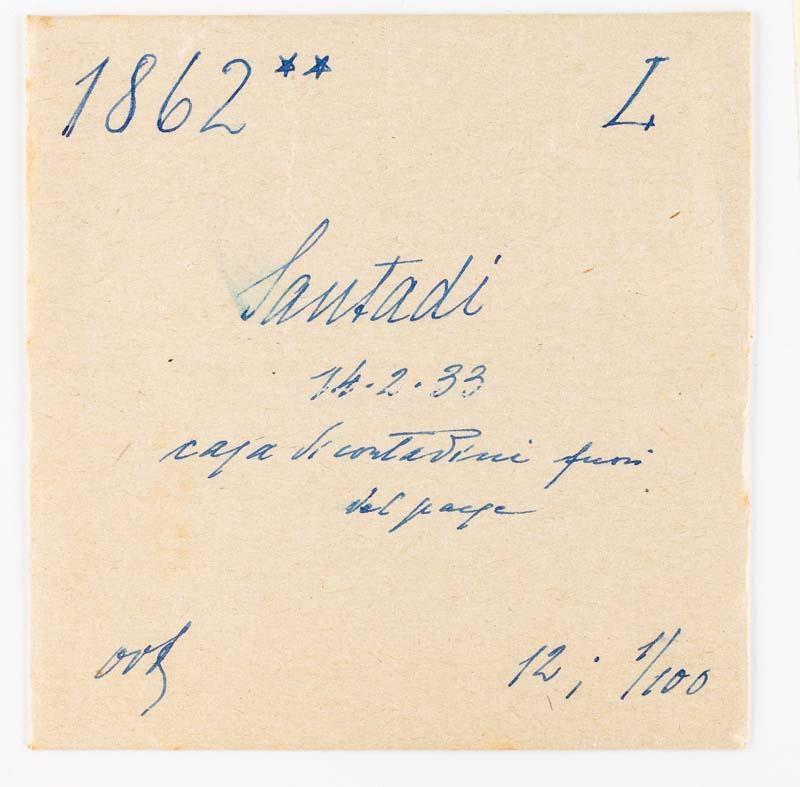 1862** L
Santadi
14.2.33
casa di contadini fuori
del paese
12; 1/100